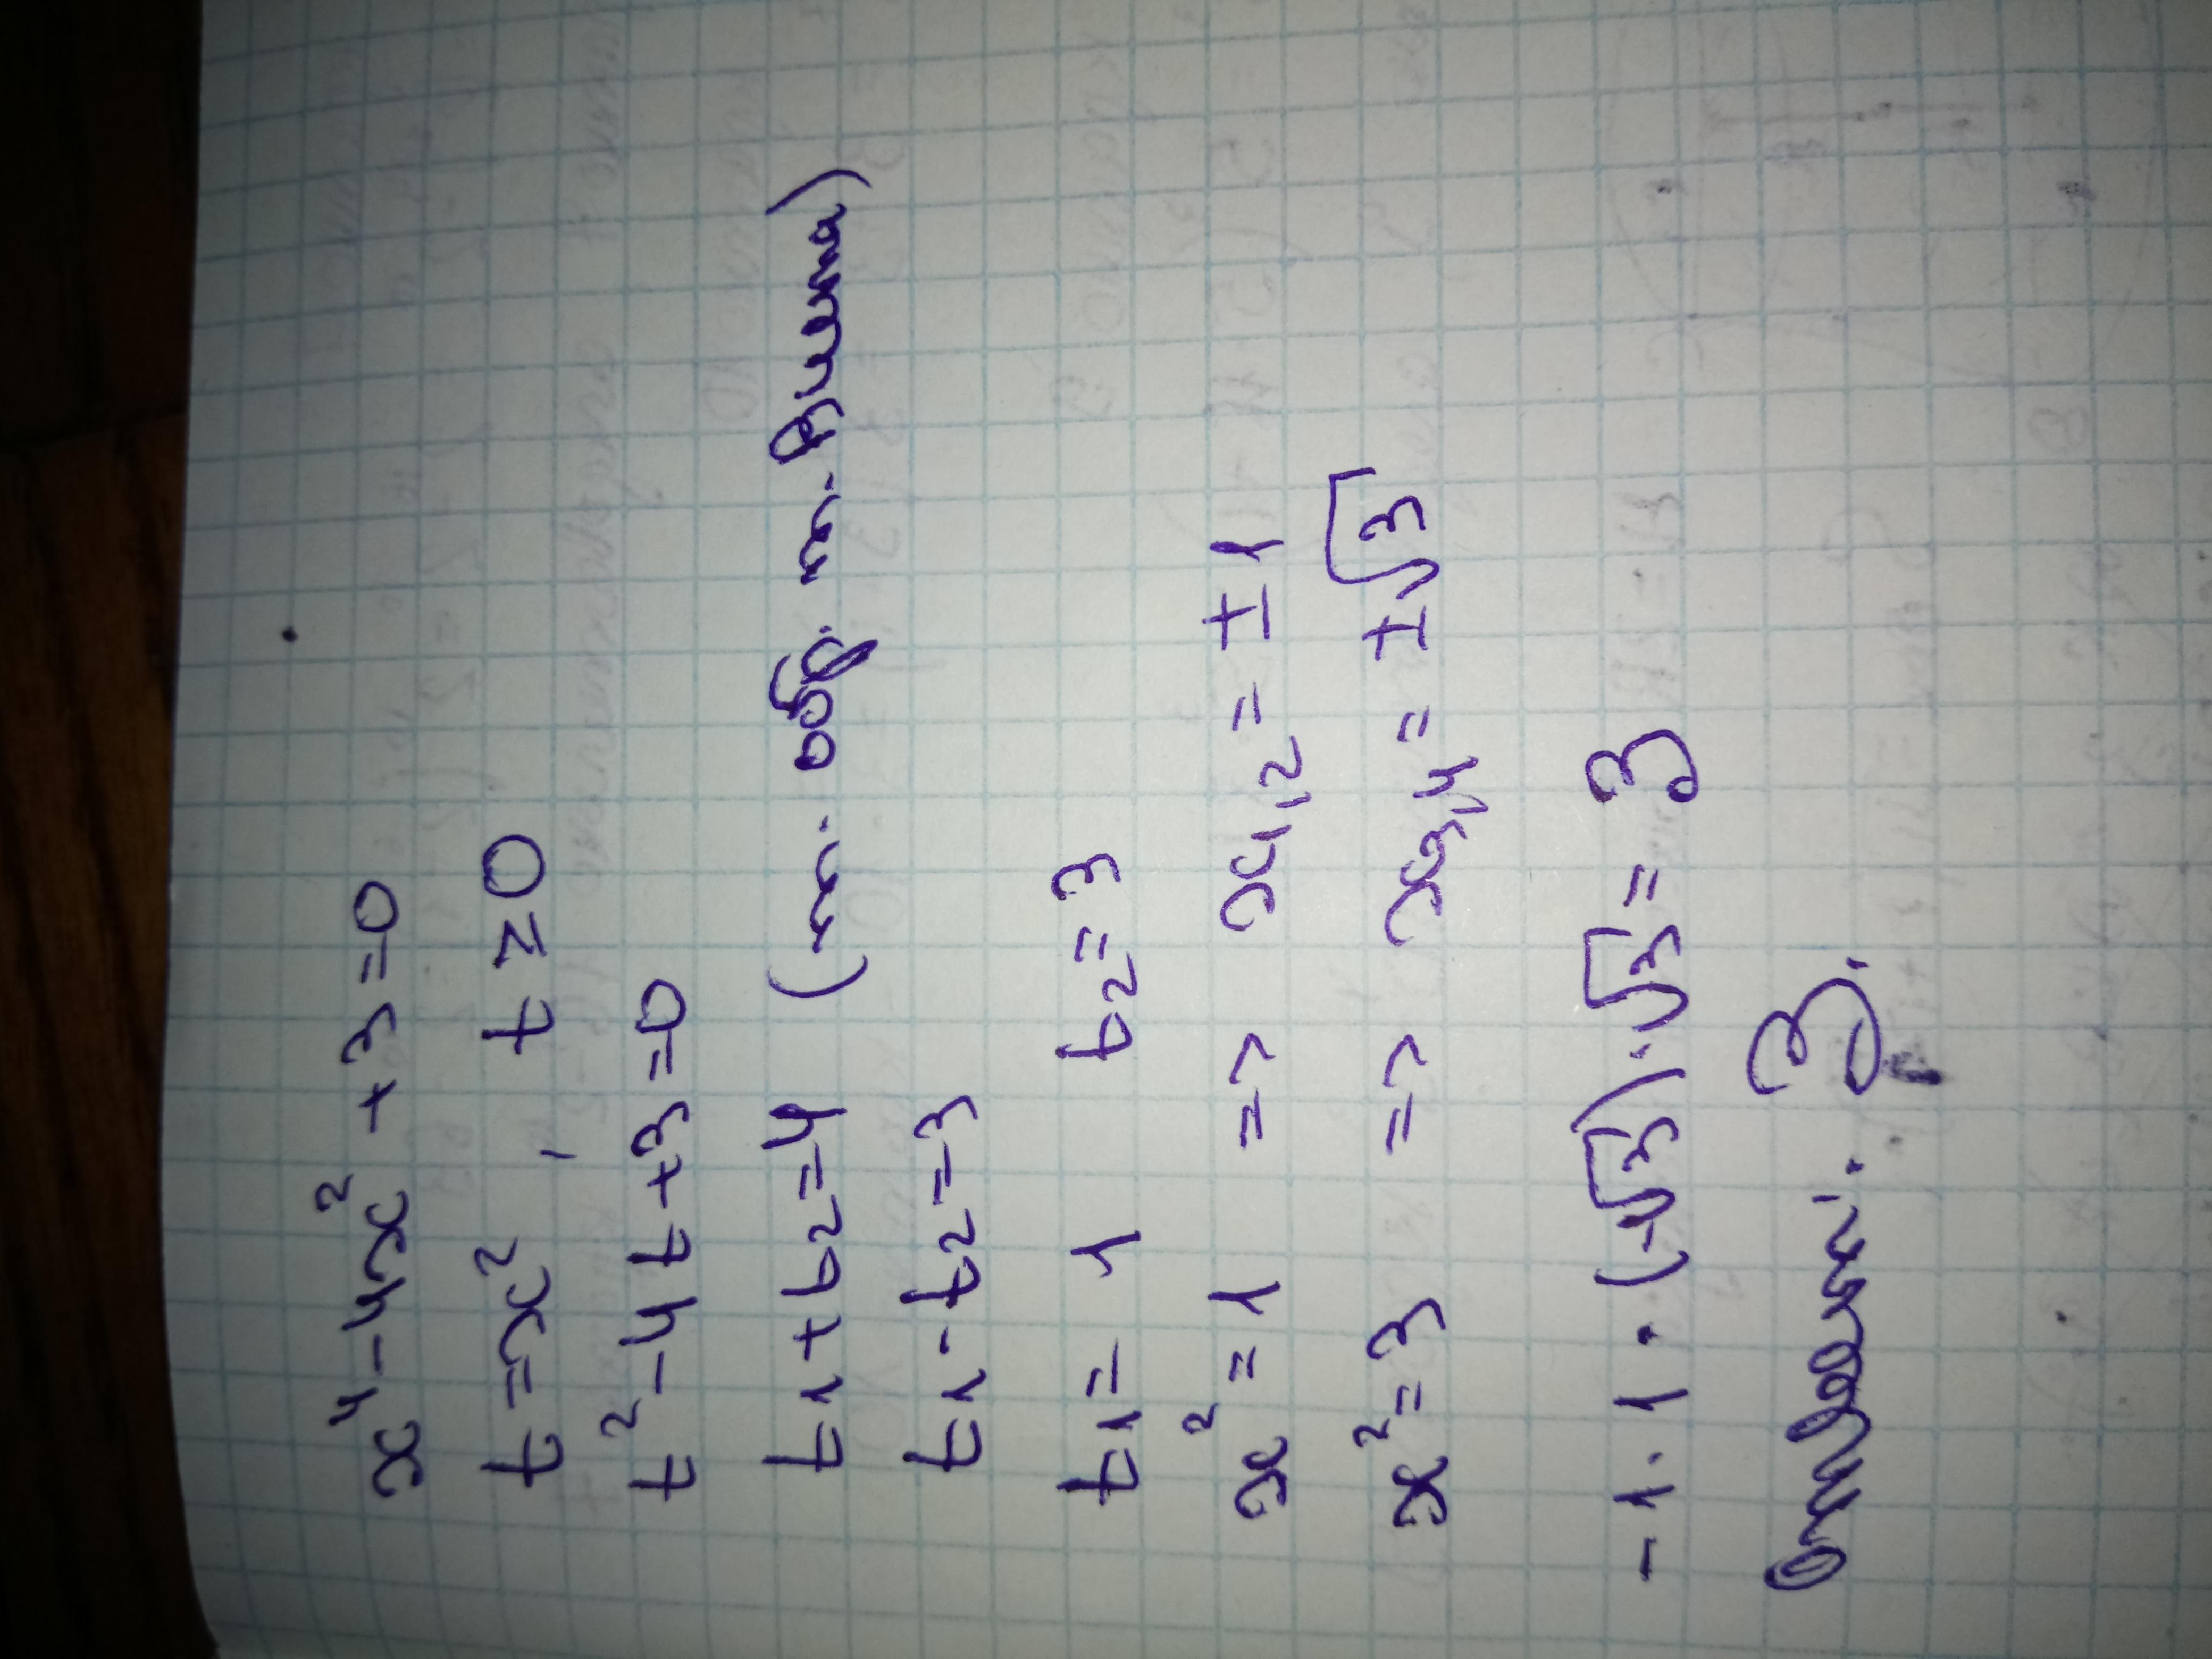 x⁴-4x²+3=0
t=x², t≥0
t²-4t+3=0
t₁+t₂=4 (т. обр. т. Виета)
t₁·t₂=3
t₁=1 t₂=3
x²=1 => x₁,₂=±1
x²=3 => x₃,₄=±√3
-1·1·(-√3)·√3=3
Ответ: 3.